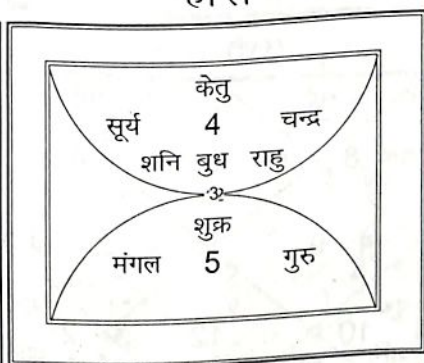 केतु
सूर्य 4 चन्द्र
शनि बुध राहु
ॐ
शुक्र
मंगल 5 गुरु